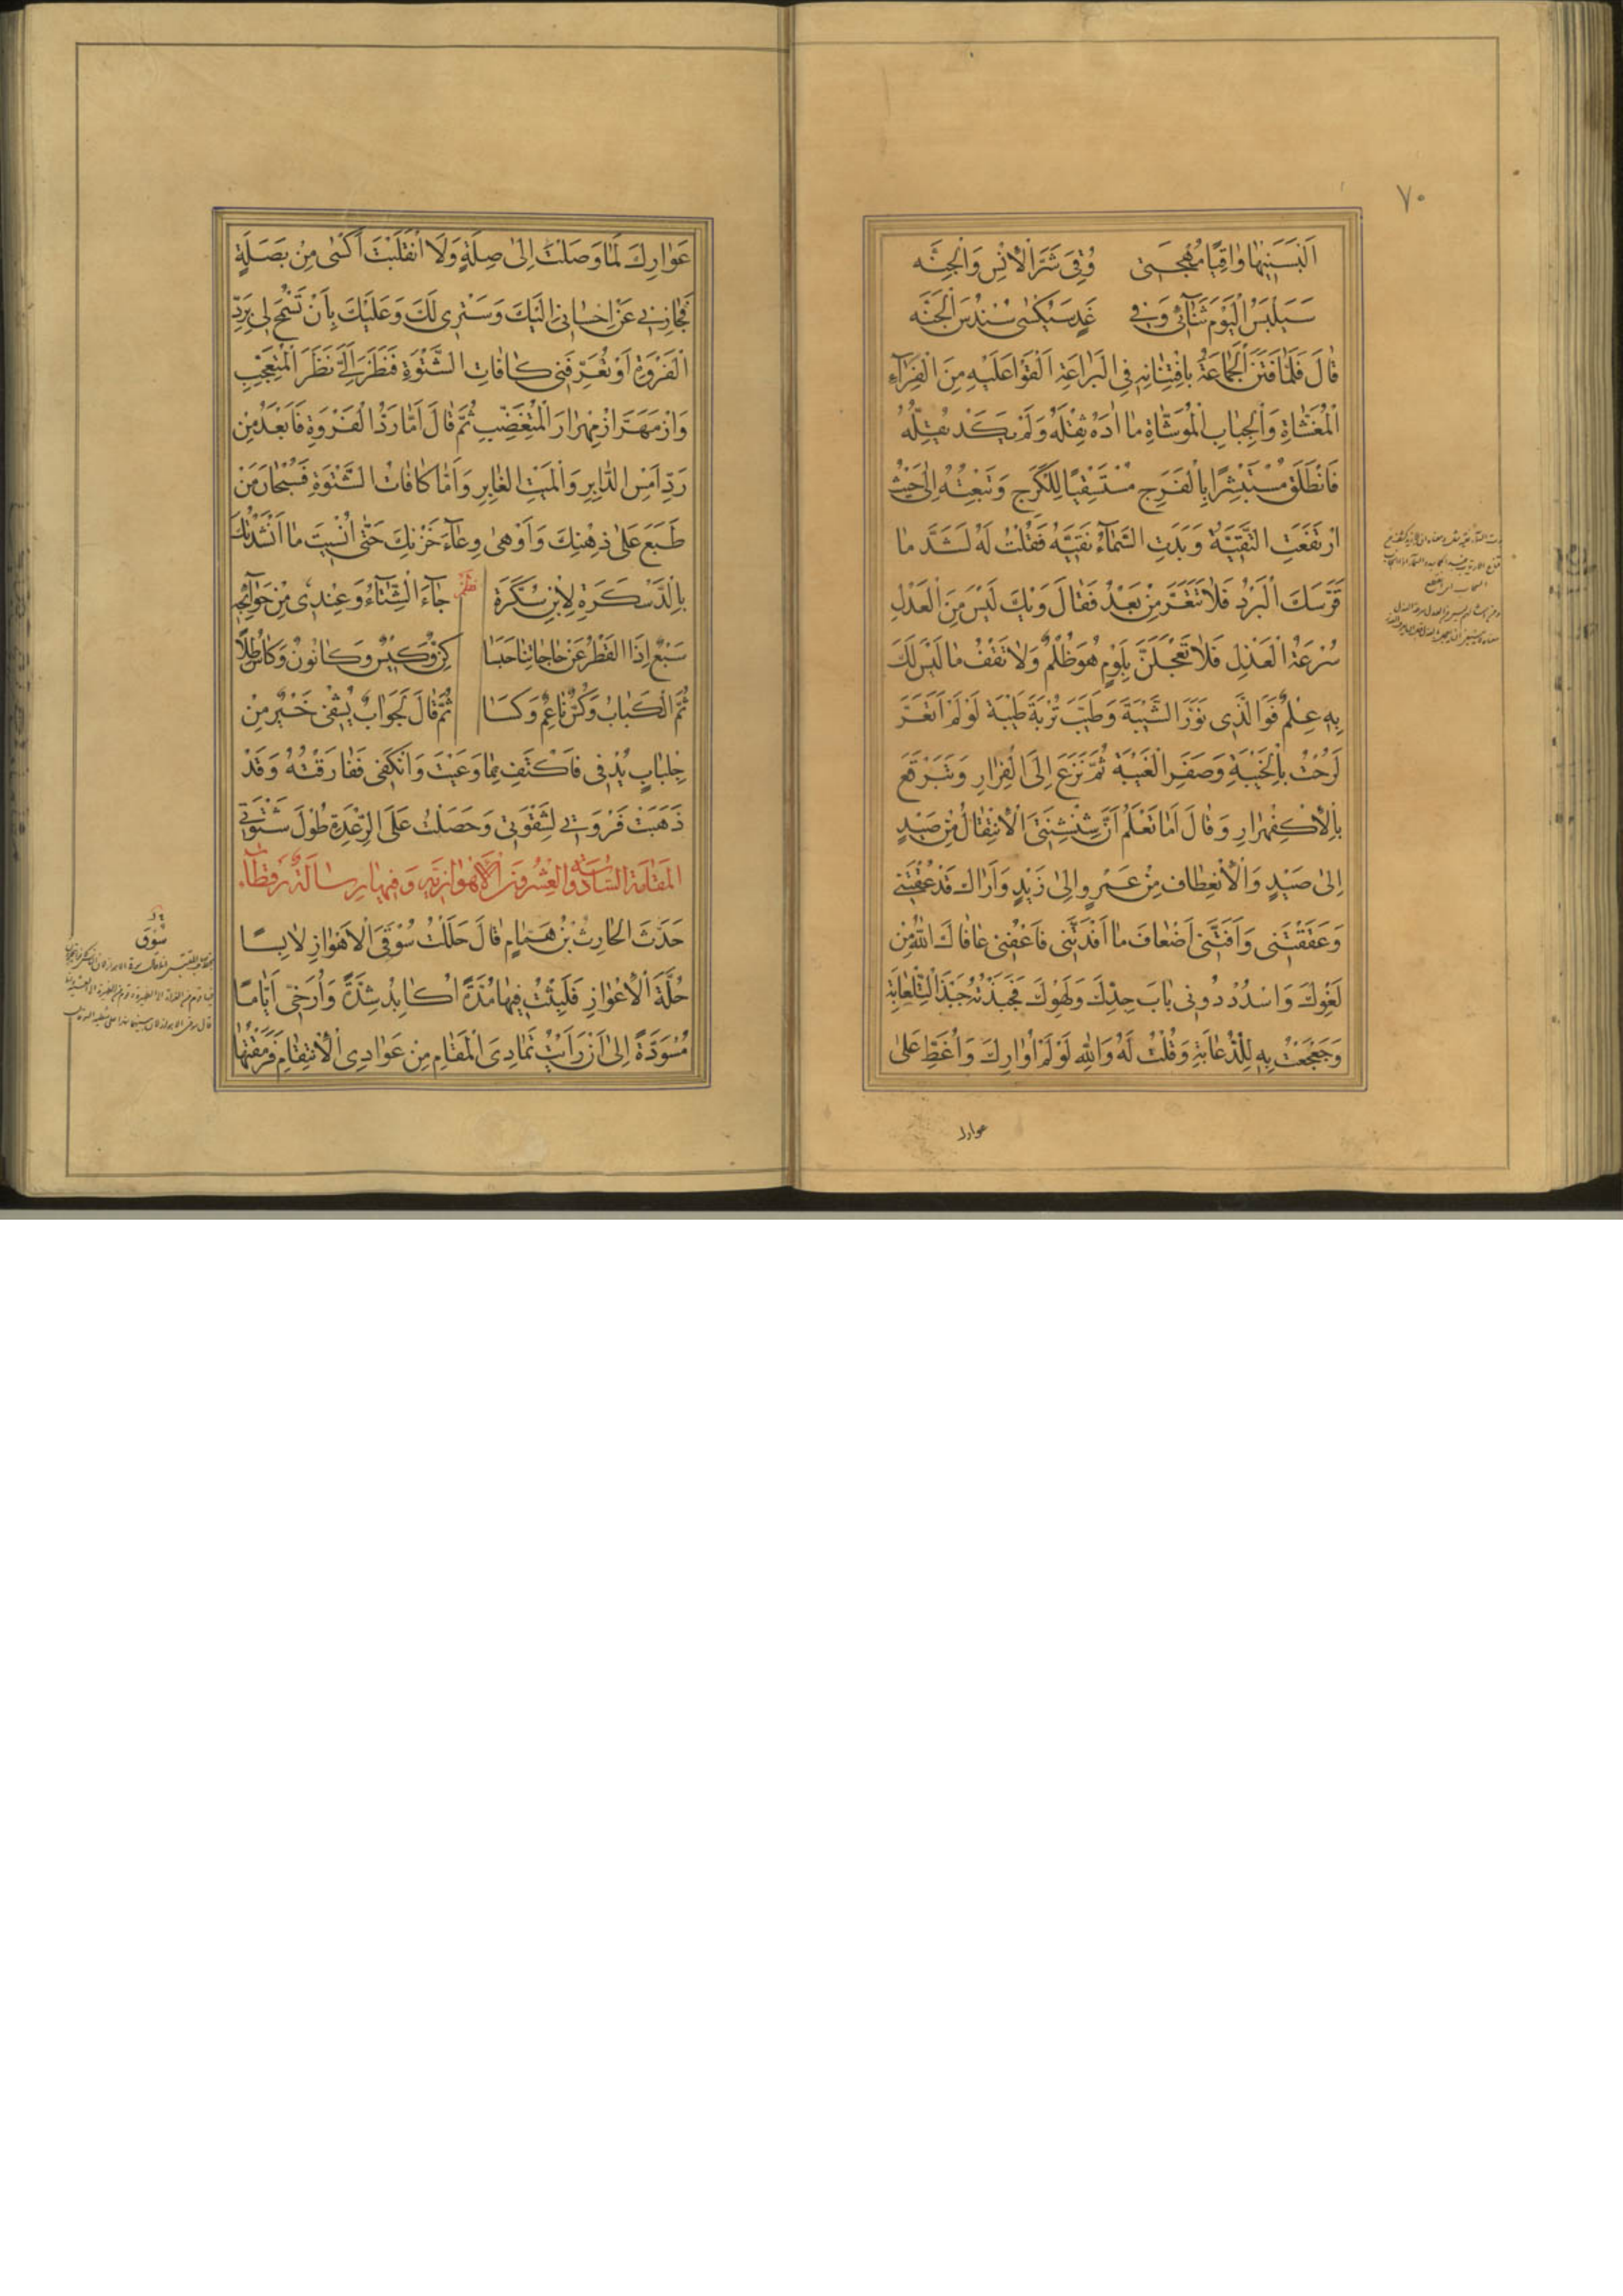 ٧٠
اَلْبَسَنِيهَا وَاقِيًا مُهْجَتِي وُقِيَ شَرَّ الْاِنْسِ وَالْجِنَّه
سَيَلْبَسُ الْيَوْمَ ثَنَآئِي وَفِي غَدٍ سَيُكْسٰى سُنْدُسَ الْجَنَّه
قٰالَ فَلَمّٰا فَتَنَ الْجَمَاعَةَ بِافْتِنَانِهِ فِي الْبَرَاعَةِ اَلْقَوْا عَلَيْهِ مِنَ الْفِرَآءِ
الْمُغَشَّاةِ وَالْجِبَابِ الْمُوَشَّاةِ مَا اٰدَهُ ثِقْلُهُ وَلَمْ يَكَدْ يُقِلُّهُ
فَانْطَلَقَ مُسْتَبْشِرًا بِالْفَرَجِ مُسْتَسْقِيًا لِلْكَرَجِ وَتَبِعْتُهُ اِلٰى حَيْثُ
ارْتَفَعَتِ التَّقِيَّةُ وَبَدَتِ السَّمَآءُ نَقِيَّةً فَقُلْتُ لَهُ لَشَدَّ مٰا
قَرَّسَكَ الْبَرْدُ فَلَا تَتَعَرَّ مِنْ بَعْدُ فَقَالَ وَيْكَ لَيْسَ مِنَ الْعَدْلِ
سُرْعَةُ الْعَذْلِ فَلَا تَعْجَلَنَّ بِلَوْمٍ هُوَ ظُلْمٌ وَلَا تَقْفُ مَا لَيْسَ لَكَ
بِهِ عِلْمٌ فَوَالَّذِي نَوَّرَ الشَّيْبَةَ وَطَيَّبَ تُرْبَةَ طَيْبَةَ لَوْ لَمْ اَتَعَرَّ
لَرُحْتُ بِالْخَيْبَةِ وَصَفَرِ الْعَيْبَةِ ثُمَّ نَزَعَ اِلَى الْفِرَارِ وَتَبَرْقَعَ
بِالْاِكْفِهْرَارِ وَقَالَ اَمَا تَعْلَمُ اَنَّ شِنْشِنَتِيَ الْاِنْتِقَالُ مِنْ صَيْدٍ
اِلٰى صَيْدٍ وَالْاِنْعِطَافُ مِنْ عَمْرٍو اِلٰى زَيْدٍ وَاَرَاكَ قَدْ عُقْتَنِي
وَعَقَقْتَنِي وَاَفَتَّنِي اَضْعَافَ مَا اَفَدْتَنِي فَاعْفِنِي عَافَاكَ اللّٰهُ مِنْ
لَغْوِكَ وَاسْدُدْ دُونِي بَابَ جِدِّكَ وَلَهْوِكَ فَجَبَذْتُهُ جَبْذَ التِّلْعَابَةِ
وَجَعْجَعْتُ بِهِ لِلدُّعَابَةِ وَقُلْتُ لَهُ وَاللّٰهِ لَوْ لَمْ اُوَارِكَ وَاُغَطِّ عَلٰى
عوارك
عَوَارِكَ لَمَا وَصَلْتَ اِلٰى صِلَةٍ وَلَا انْقَلَبْتَ اَكْسٰى مِنْ بَصَلَةٍ
فَجَازِنِي عَنْ اِحْسَانِي اِلَيْكَ وَسَتْرِي لَكَ وَعَلَيْكَ بِاَنْ تَسْمَحَ لِي بِرَدِّ
الْفَرْوَةِ اَوْ تُعَرِّفَنِي كَافَاتِ الشَّتْوَةِ فَنَظَرَ اِلَيَّ نَظَرَ الْمُتَعَجِّبِ
وَازْمَهَرَّ ازْمِهْرَارَ الْمُتَغَضِّبِ ثُمَّ قَالَ اَمَّا رَدُّ الْفَرْوَةِ فَاَبْعَدُ مِنْ
رَدِّ اَمْسِ الدَّابِرِ وَالْمَيْتِ الْغَابِرِ وَاَمَّا كَافَاتُ الشَّتْوَةِ فَسُبْحَانَ مَنْ
طَبَعَ عَلٰى ذِهْنِكَ وَاَوْهٰى وِعَآءَ خَزْنِكَ حَتّٰى اُنْسِيتَ مَا اَنْشَدْتُكَ
بِالدَّسْكَرَةِ لِابْنِ سُكَّرَةَ نظم جَآءَ الشِّتَآءُ وَعِنْدِي مِنْ حَوَآئِجِهِ
سَبْعٌ اِذَا الْقَطْرُ عَنْ حَاجَاتِنَا حَبَسَا كِنٌّ وَكِيسٌ وَكَانُونٌ وَكَاسُ طِلًا
ثُمَّ الْكَبَابُ وَكُسٌّ نَاعِمٌ وَكَسَا ثُمَّ قَالَ لَجَوَابٌ يُشْفِي خَيْرٌ مِنْ
جِلْبَابٍ يُدْفِي فَاكْتَفِ بِمَا وَعَيْتَ وَانْكَفِي فَفَارَقْتُهُ وَقَدْ
ذَهَبَتْ فَرْوَتِي لِشَقْوَتِي وَحَصَلْتُ عَلَى الرِّعْدَةِ طُولَ شَتْوَتِي
المَقَامَة السَّادِسَة وَالعِشْرُونَ الْاَهْوَازِيَّة وَفِيهَا رِسَالَة رَقْطَآء
حَدَّثَ الْحَارِثُ بْنُ هَمَّامٍ قَالَ حَلَلْتُ سُوْقَيِ الْاَهْوَازِ لَابِسًا
حُلَّةَ الْاِعْوَازِ فَلَبِثْتُ فِيهَا مُدَّةً اُكَابِدُ شِدَّةً وَاُزَجِّي اَيَّامًا
مُسْوَدَّةً اِلٰى اَنْ رَاَيْتُ تَمَادِيَ الْمَقَامِ مِنْ عَوَادِي الْاِنْتِقَامِ فَرَمَقْتُهَا
سُوْقَى